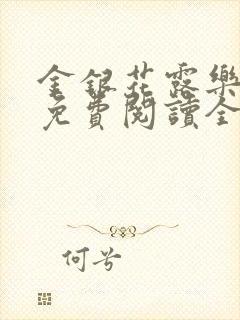 金銀花露樂
免費閱讀全
何兮